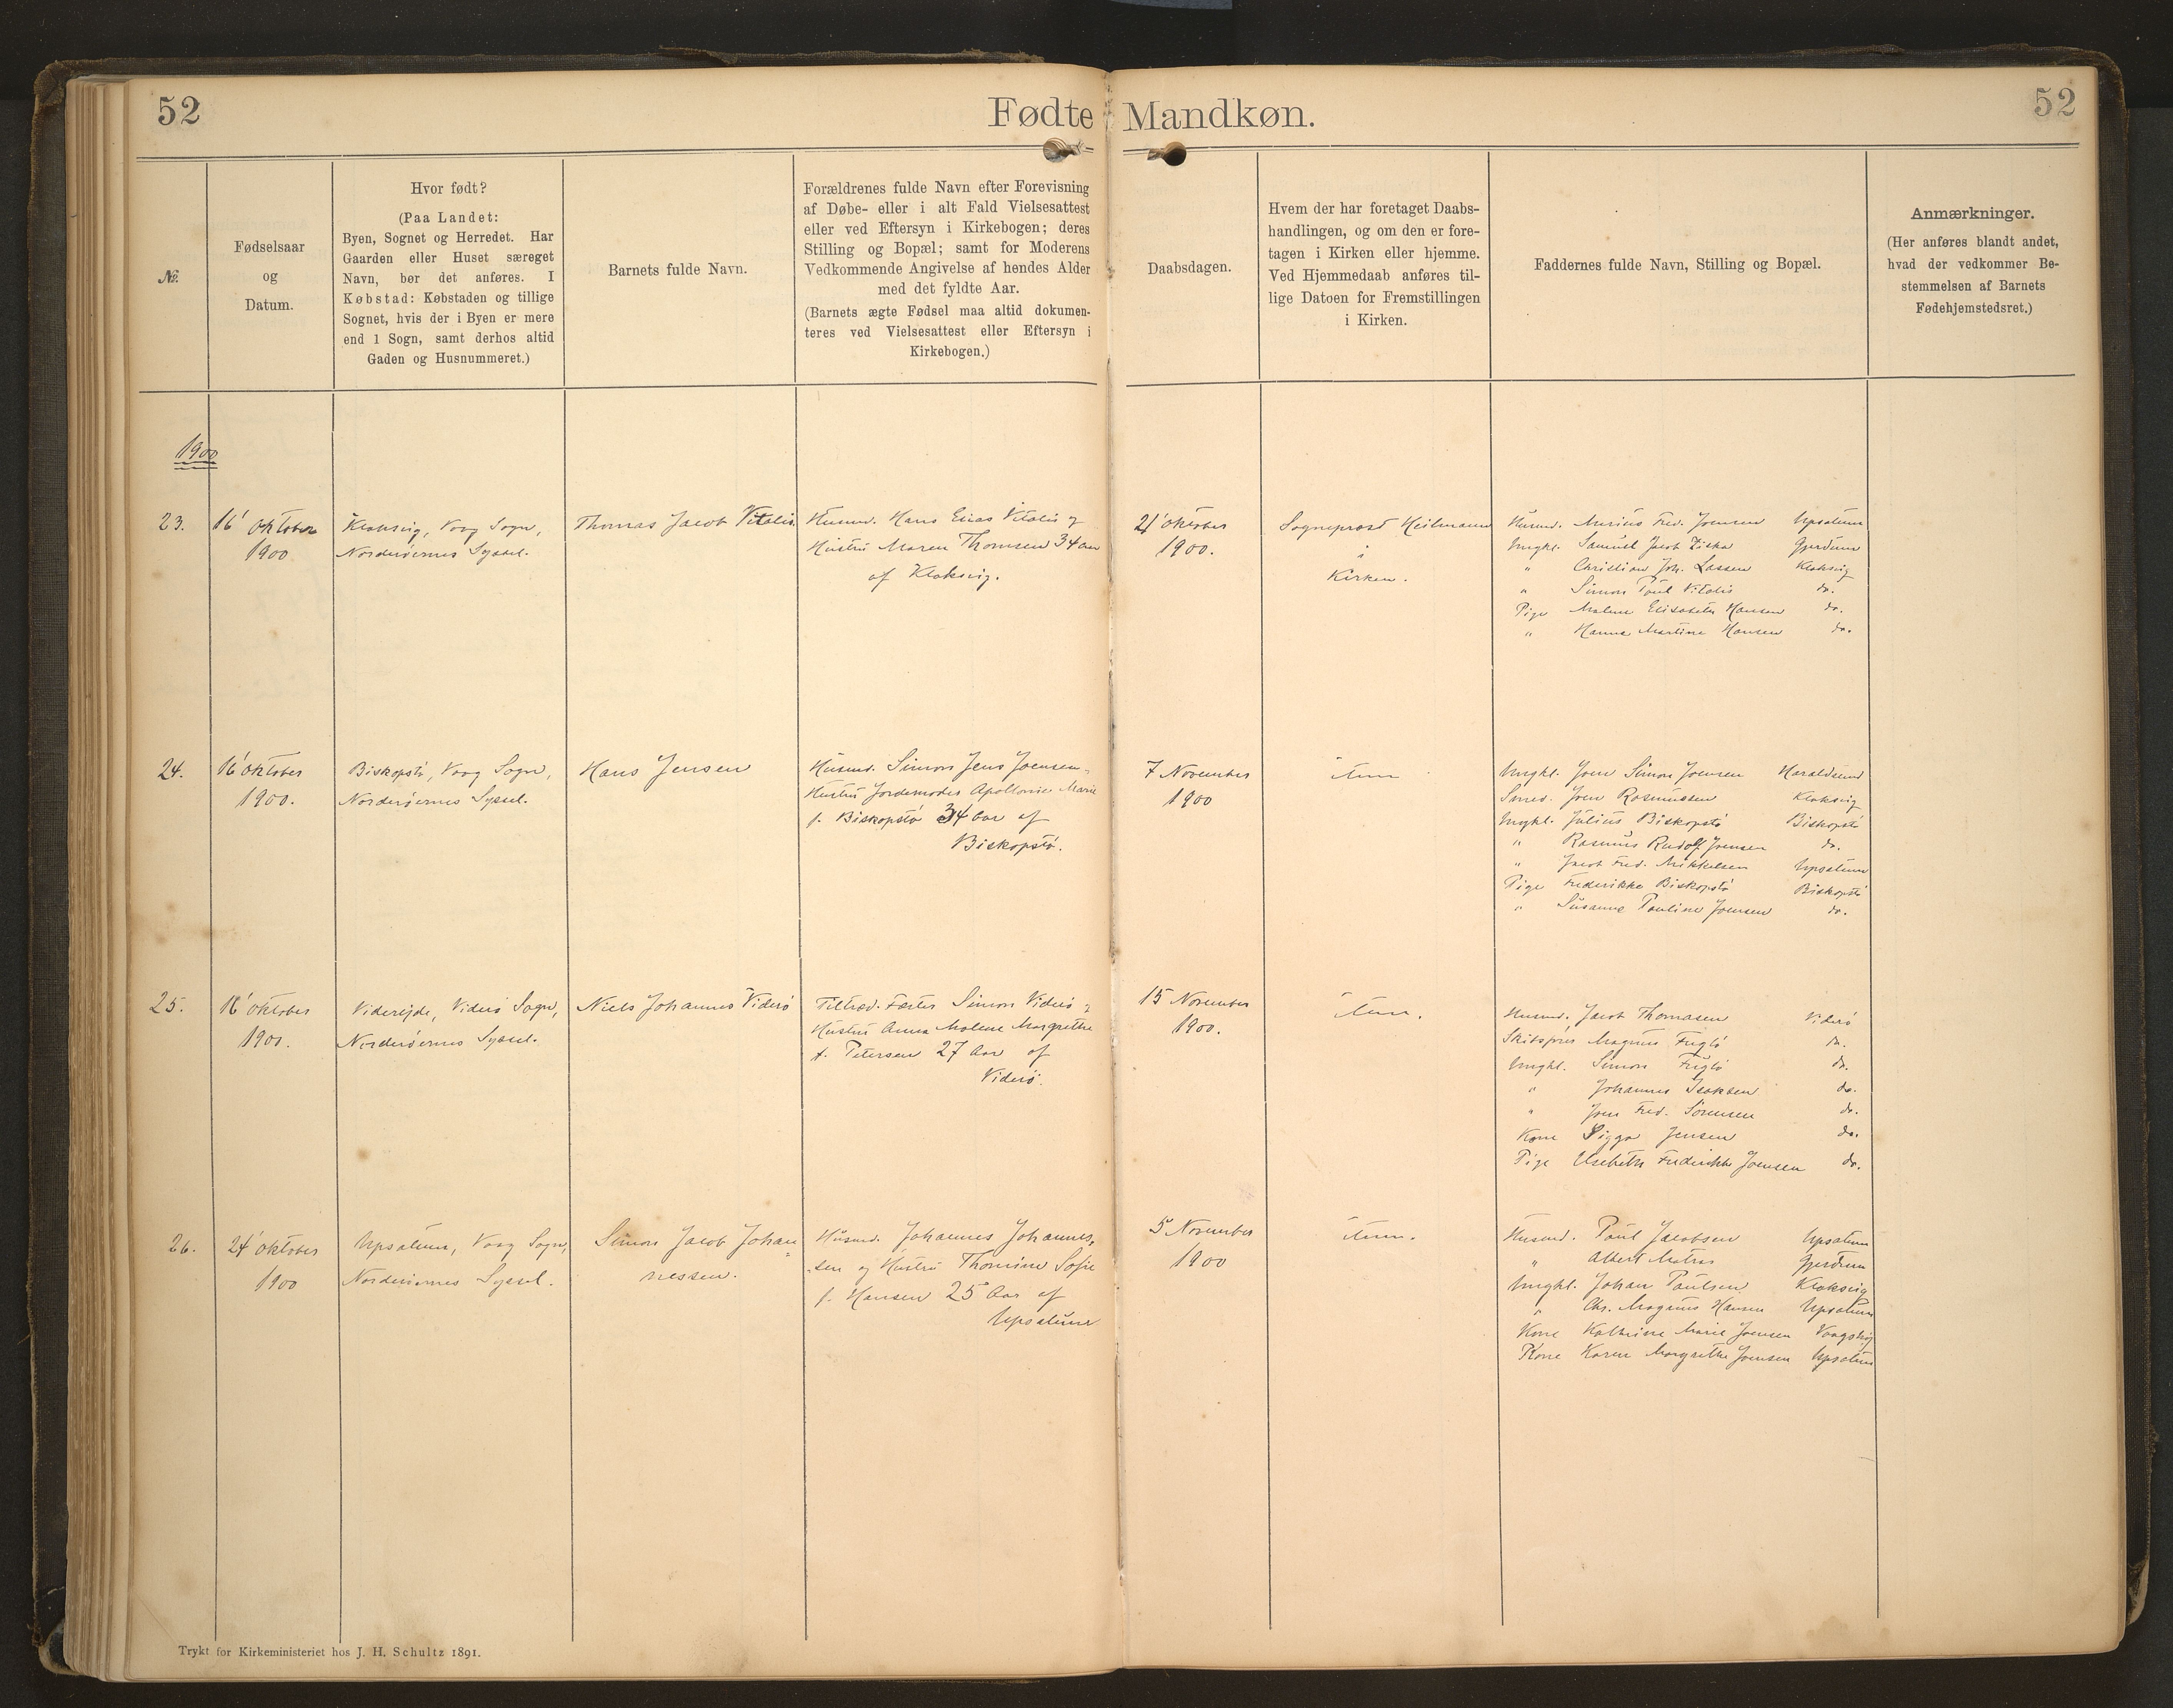 52
Fødte Mandkøn.
52
№
Fødselsaar
og
Datum.
Hvor født?
(Paa Landet:
Byen, Sognet og Herredet. Har
Gaarden eller Huset særeget
Navn, bør det anføres. I
Købstad: Købstaden og tillige
Sognet, hvis der i Byen er mere
end 1 Sogn, samt derhos altid
Gaden og Husnummeret.)
Barnets fulde Navn.
Forældrenes fulde Navn efter Forevisning
af Døbe- eller i alt Fald Vielsesattest
eller ved Eftersyn i Kirkebogen; deres
Stilling og Bopæl; samt for Moderens
Vedkommende Angivelse af hendes Alder
med det fyldte Aar.
(Barnets ægte Fødsel maa altid dokumen-
teres ved Vielsesattest eller Eftersyn i
Kirkebogen.)
Daabsdagen.
Hvem der har foretaget Daabs-
handlingen, og om den er fore-
tagen i Kirken eller hjemme.
Ved Hjemmedaab anføres til-
lige Datoen for Fremstillingen
i Kirken.
Faddernes fulde Navn, Stilling og Bopæl.
Anmærkninger.
(Her anføres blandt andet,
hvad der vedkommer Be-
stemmelsen af Barnets
Fødehjemstedsret.)
1900
23.
16' Oktober
1900
Klaksvig, Vaag Sogn,
Norderöernes Syssel.
Thomas Jacob Vitalis
Husmd. Hans Elias Vitalis og
Hustru Maren Thomsen 34 aar
af Klaksvig.
21' Oktober
1900.
Sogneprost Heilmann
i
Kirken.
Husmd. Marius Fred. Joensen Upsalum
Ungkl. Samuel Jacob Ziska Gjerdum
" Christian Joh. Lassen Klaksvig
" Simon Poul Vitalis do.
Pige Malene Elisabeth Hansen do.
" Hanna Martine Hansen do.
24.
16' Oktober
1900.
Biskopstö, Vaag Sogn,
Norderöernes Syssel.
Hans Jensen
Husmd. Simon Jens Joensen,
Hustru Jordemoder Apollonie Marie
f. Biskopstö 34 Aar af
Biskopstö.
7 November
1900
item
Ungkl. Joen Simon Joensen Haraldsund
Smed. Joen Rasmussen Klaksvig
Ungkl. Julius Biskopstö Biskopstö
" Rasmus Rudolf Joensen do.
" Jacob Fred. Mikkelsen Upsalum
Pige Frederikke Biskopstö Biskopstö
" Susanne Pauline Joensen do.
25.
18' Oktober
1900.
Viderejde, Viderö Sogn,
Norderöernes Syssel.
Niels Johannes Viderö
Tiltræd. Fæster Simon Viderö og
Hustru Anna Malene Margrethe
f. Petersen 27 Aar af
Viderö.
15 November
1900.
item.
Husmd. Jacob Thomasen Viderö
Magnus Fuglö do.
Ungkl. Simon Fuglö do.
" Johannes Isaksen do.
" Joen Fred. Sörensen do.
Kone Sigga Jensen do.
Pige Elsebeth Frederikke Joensen do.
26.
24' Oktober
1900
Upsalum, Vaag Sogn,
Norderöernes Syssel.
Simon Jacob Johan=
nessen.
Husmd. Johannes Johannes,
sen og Hustru Thomine Sofie
f. Hansen 25 Aar af
Upsalum
5 November
1900
item.
Husmd. Poul Jacobsen Upsalum
" Albert Matras Gjerdum
Ungkl. Johan Poulsen Klaksvig
" Chr. Magnus Hansen Upsalum
Kone Kathrine Marie Joensen
Kone Karen Margrethe Joensen Upsalum
Trykt for Kirkeministeriet hos J. H. Schultz 1891.